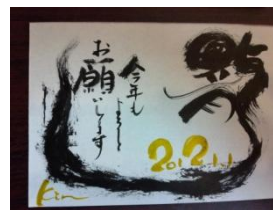 今年もよろしく
お願いします
2012.1.1